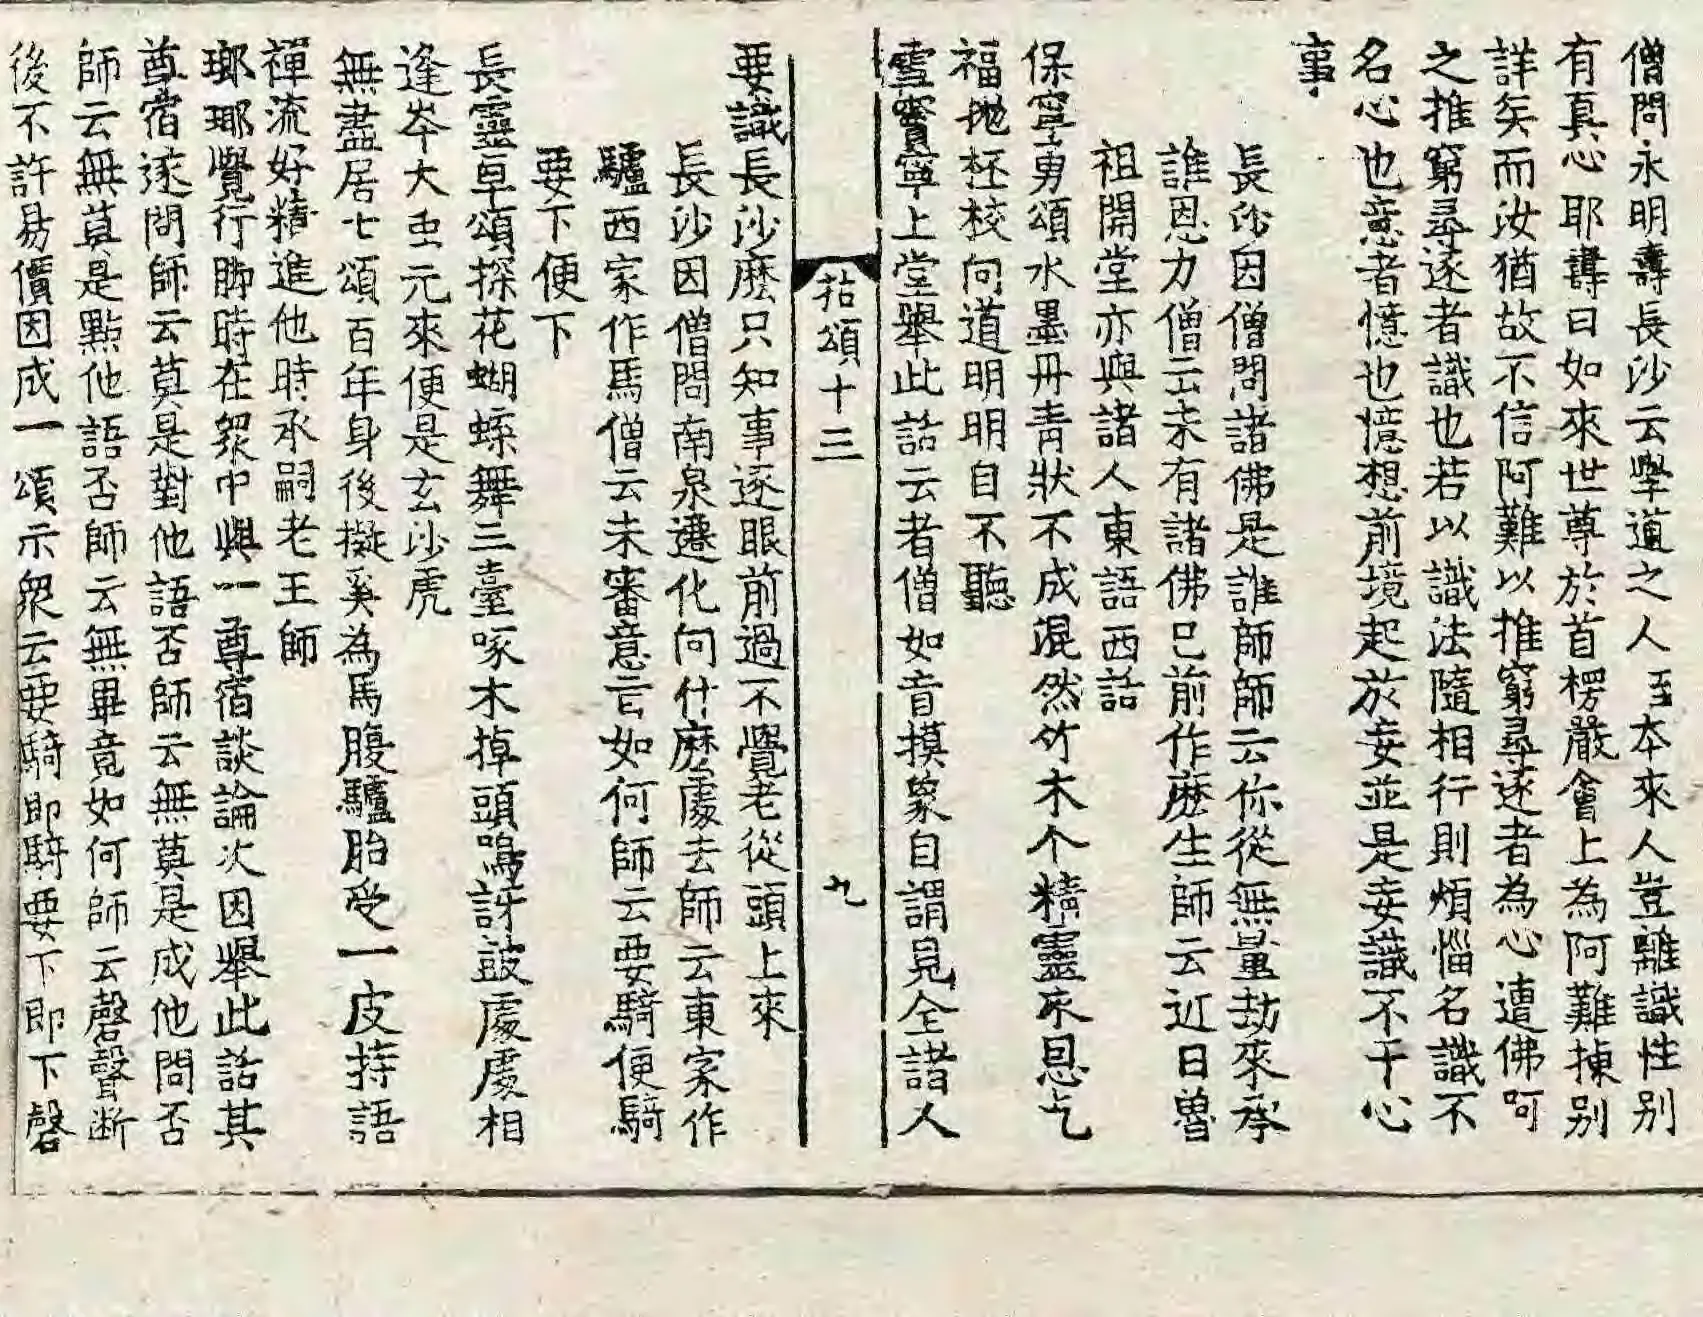 僧問永明壽長沙云學道之人至本來人豈離識性別
有真心耶壽曰如來世尊於首楞嚴會上為阿難揀別
詳矣而汝猶故不信阿難以推窮尋逐者為心遭佛呵
之推窮尋逐者識也若以識法隨相行則煩惱名識不
名心也意者憶也憶想前境起於妄並是妄識不干心
事
長沙因僧問諸佛是誰師師云你從無量劫來承
誰恩力僧云未有諸佛已前作麽生師云近日魯
祖開堂亦與諸人東語西話
保寧勇頌水墨丹青狀不成混然竹木个精靈來思乞
福抛柸校向道明明自不聽
雪竇寧上堂舉此話云者僧如盲摸象自謂見全諸人
拈頌十三
九
要識長沙麽只知事逐眼前過不覺老從頭上來
長沙因僧問南泉遷化向什麽處去師云東家作
驢西家作馬僧云未審意旨如何師云要騎便騎
要下便下
長靈卓頌探花蝴蝶舞三臺啄木掉頭鳴訝鼓處處相
逢岑大虫元來便是玄沙虎
無盡居士頌百年身後擬奚為馬腹驢胎受一皮持語
禪流好精進他時承嗣老王師
瑯瑘覺行脚時在眾中與一尊宿談論次因舉此話其
尊宿遂問師云莫是對他語否師云無莫是成他問否
師云無莫是點他語否師云無畢竟如何師云罄聲斷
後不許易價因成一頌示眾云要騎即騎要下即下罄